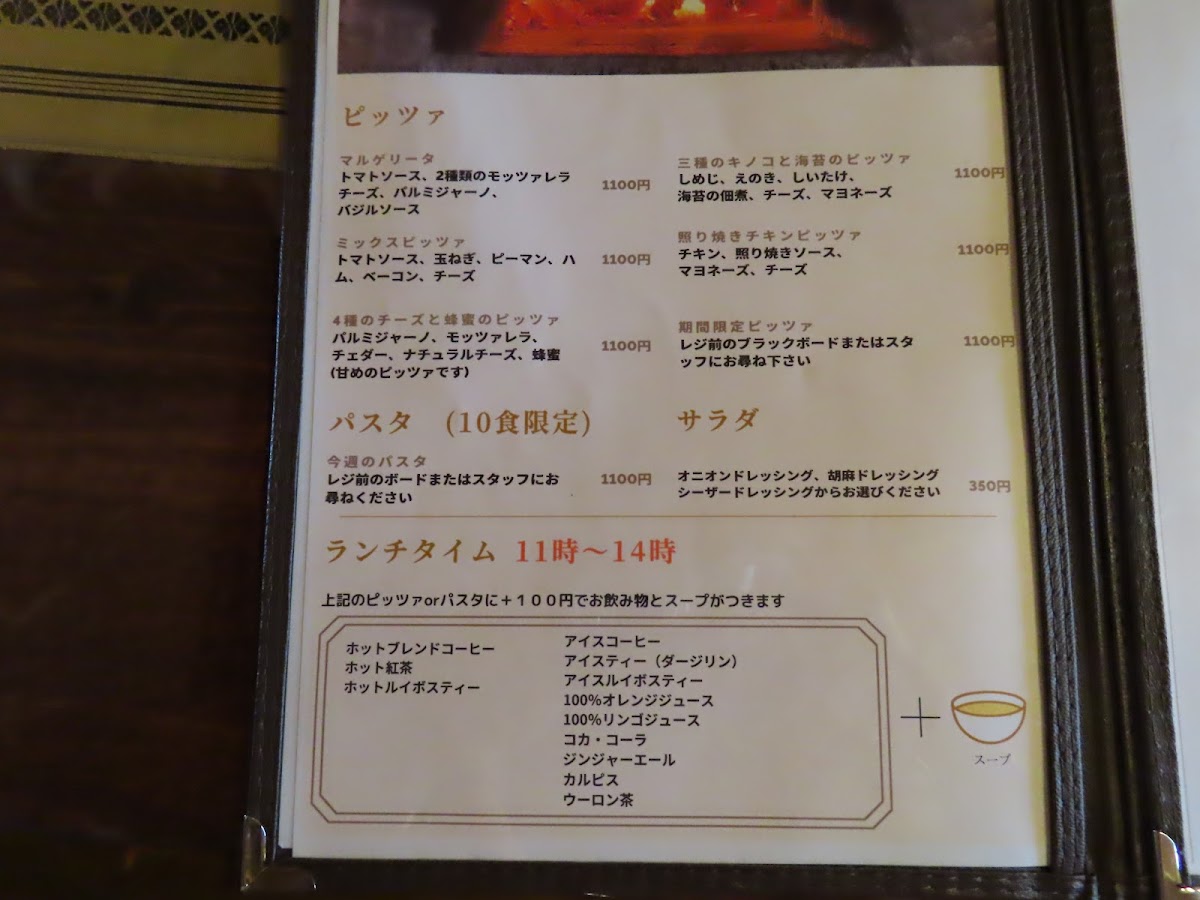 ピッツァ
マルゲリータ
トマトソース、2種類のモッツァレラ
チーズ、パルミジャーノ、
バジルソース
1100円
ミックスピッツァ
トマトソース、玉ねぎ、ピーマン、ハ
ム、ベーコン、チーズ
1100円
4種のチーズと蜂蜜のピッツァ
パルミジャーノ、モッツァレラ、
チェダー、ナチュラルチーズ、蜂蜜
(甘めのピッツァです)
1100円
三種のキノコと海苔のピッツァ
しめじ、えのき、しいたけ、
海苔の佃煮、チーズ、マヨネーズ
1100円
照り焼きチキンピッツァ
チキン、照り焼きソース、
マヨネーズ、チーズ
1100円
期間限定ピッツァ
レジ前のブラックボードまたはスタ
ッフにお尋ね下さい
1100円
パスタ (10食限定)
今週のパスタ
レジ前のボードまたはスタッフにお
尋ねください
1100円
サラダ
オニオンドレッシング、胡麻ドレッシング
シーザードレッシングからお選びください
350円
ランチタイム 11時～14時
上記のピッツァorパスタに＋１００円でお飲み物とスープがつきます
ホットブレンドコーヒー
ホット紅茶
ホットルイボスティー
アイスコーヒー
アイスティー（ダージリン）
アイスルイボスティー
100%オレンジジュース
100%リンゴジュース
コカ・コーラ
ジンジャーエール
カルピス
ウーロン茶
＋
スープ